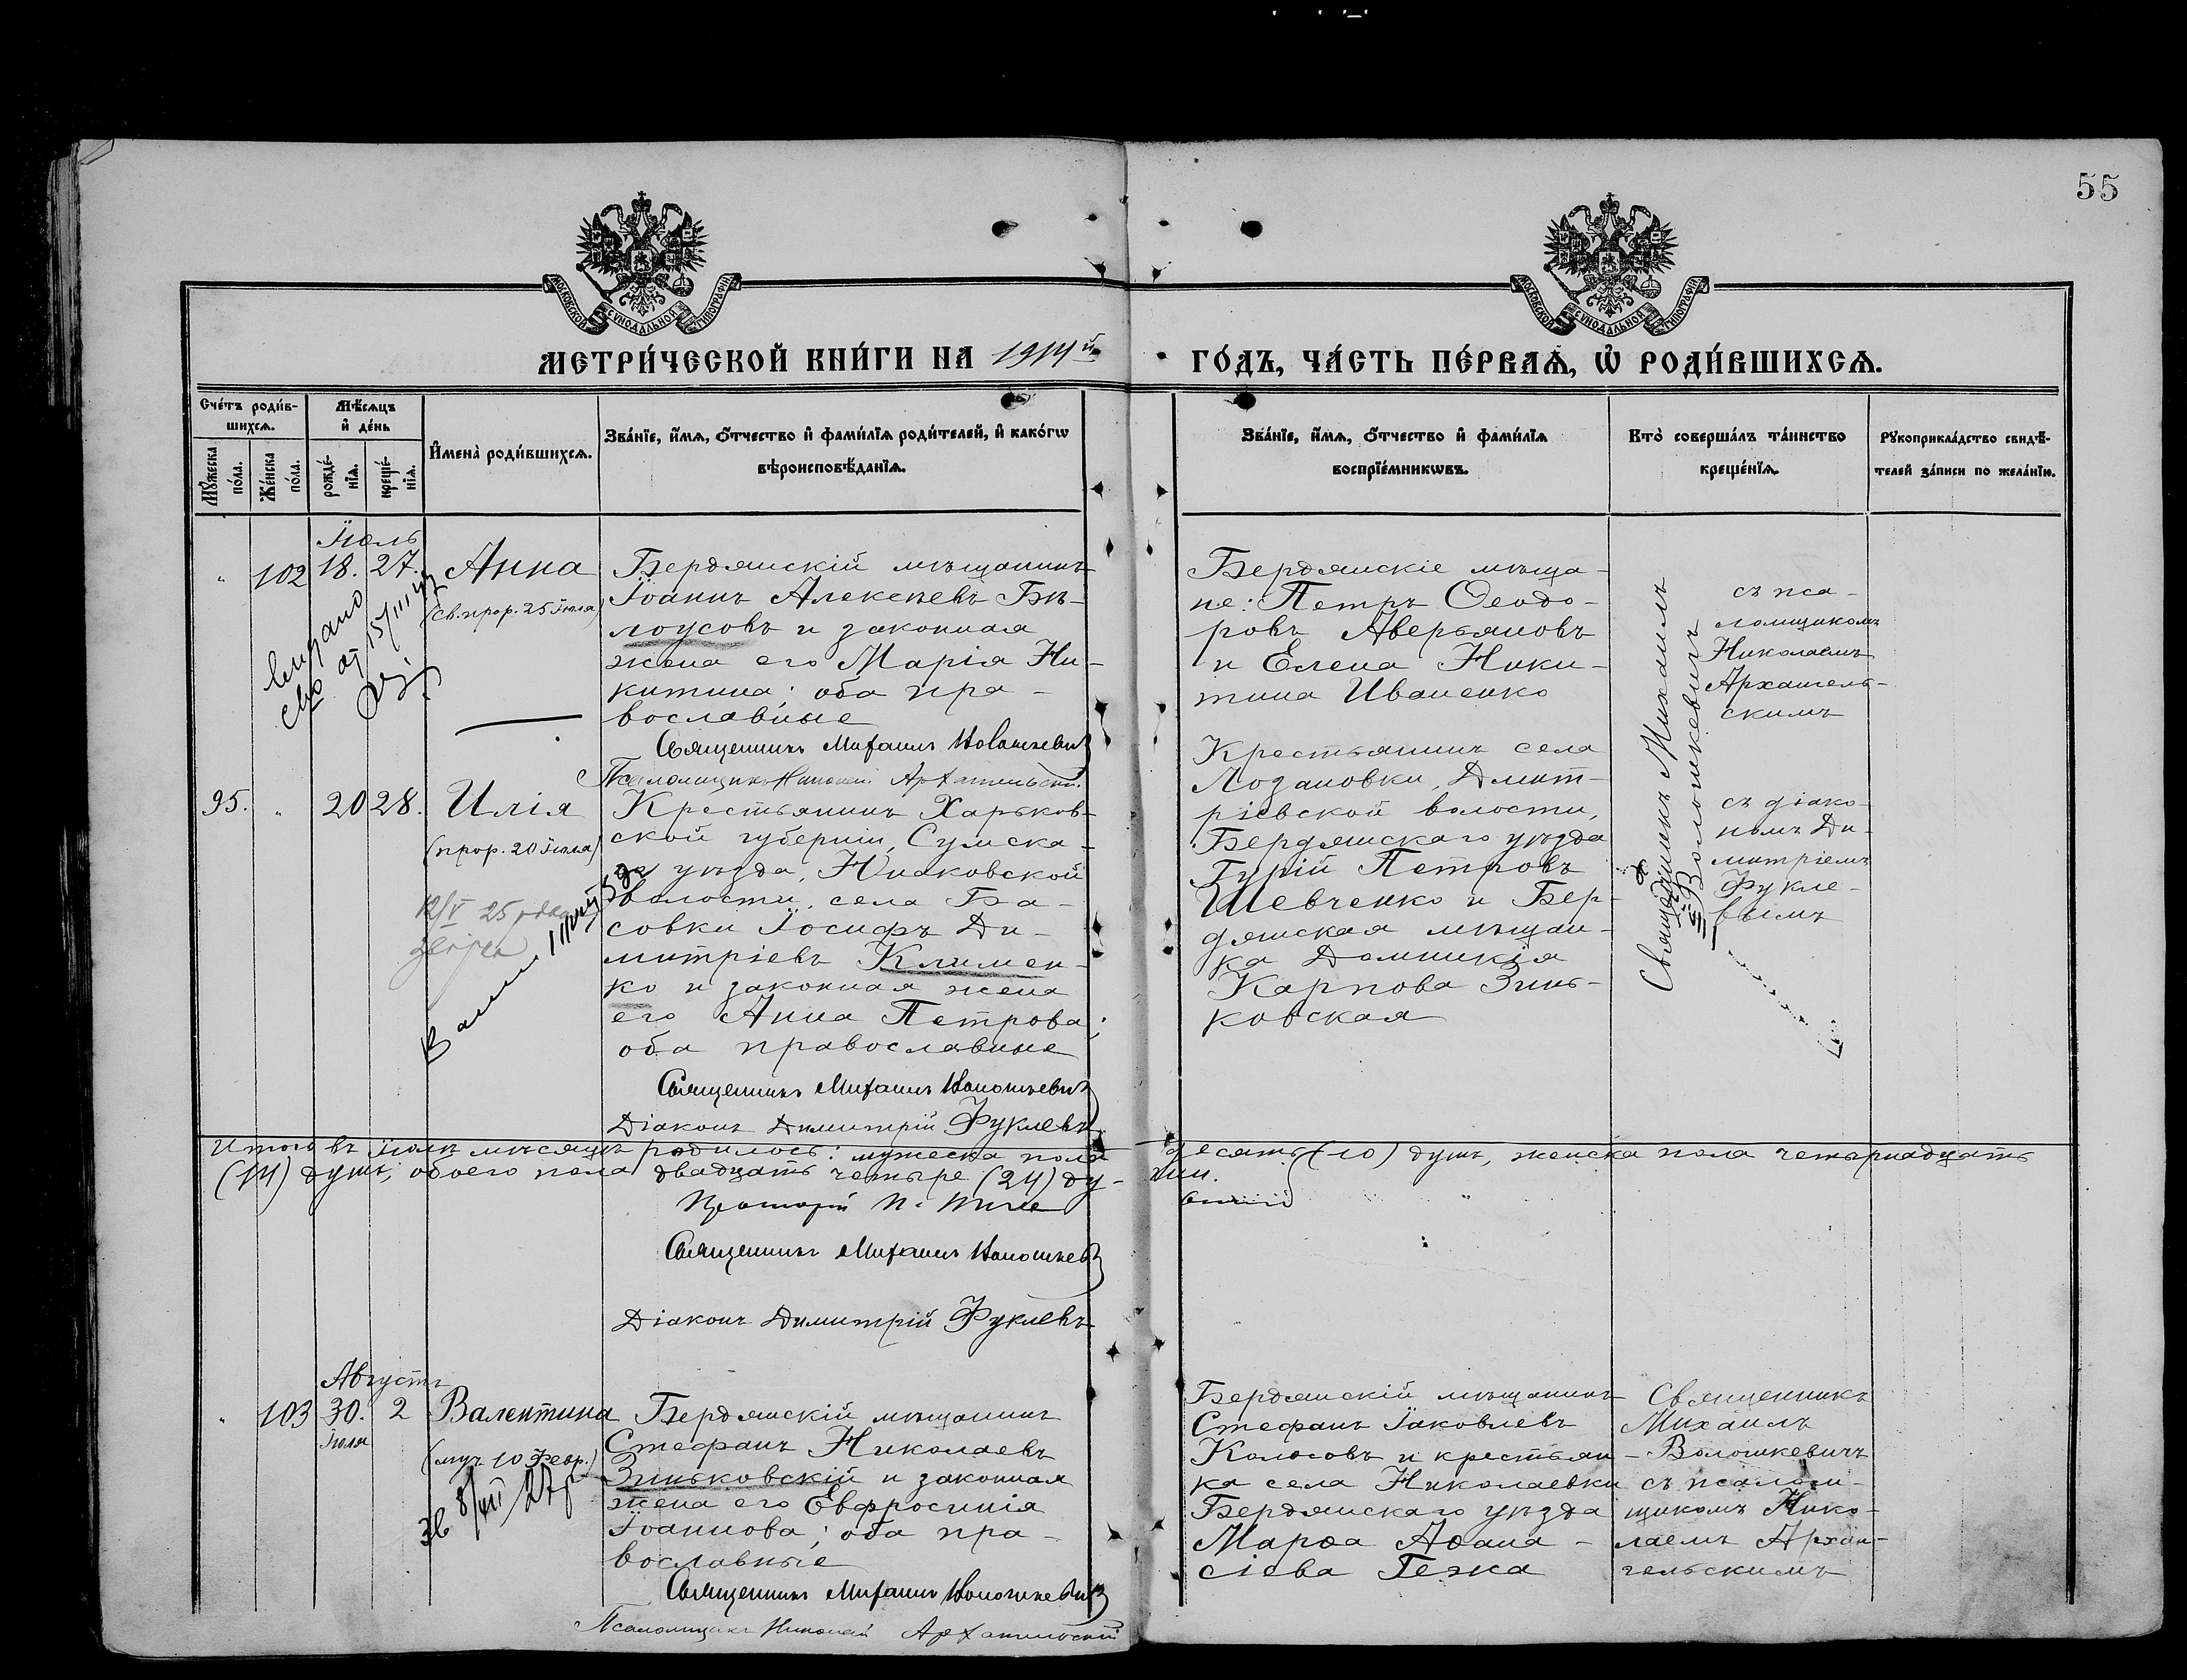 55
МОСКОВСКОЙ СУНОДАЛЬНОЙ ТИПОГРАФІИ
МОСКОВСКОЙ СУНОДАЛЬНОЙ ТИПОГРАФІИ
МЕТРИ́ЧЕСКОЙ КНИ́ГИ НА 1914й
ГО́ДЪ, ЧА́СТЬ ПЕ́РВАѦ, Ѡ҆ РОДИ́ВШИХСѦ.
Сче́тъ роди́в-
шихсѧ.
Мꙋ́жеска по́ла.
Же́нска по́ла.
Мѣ́сѧцъ
и҆ де́нь
рожде́-
нїѧ.
креще́-
нїѧ.
И҆мена̀ роди́вшихсѧ.
Зва́нїе, и҆́мѧ, ѻ҆́тчество и҆ фами́лїѧ роди́телей, и҆ како́гѡ
вѣроисповѣ́данїѧ.
Зва́нїе, и҆́мѧ, ѻ҆́тчество и҆ фами́лїѧ
воспрїе́мникѡвъ.
Кто̀ соверша́лъ та́инство
креще́нїѧ.
Рꙋкоприкла́дство свидѣ́-
телей за́писи по жела́нїю.
Іюль
102 18. 27. Анна
(св. прор. 25 Іюля)
Бердянскій мѣщанинъ
Іоаннъ Алексѣевъ Бѣ-
лоусовъ и законная
жена его Марія Ни-
китина; оба пра-
вославные
Священникъ Михаилъ Волошкевичъ
Псаломщикъ Николай Архангельскій
Бердянскіе мѣща-
не: Петръ Ѳеодо-
ровъ Аверьяновъ
и Елена Ники-
тина Иваненко
Священникъ Михаилъ
Волошкевичъ
съ пса-
ломщикомъ
Николаемъ
Архангель-
скимъ
95. 20 28. Илія
(прор. 20 Іюля)
12/V 25 года
Крестьянинъ Харьков-
ской губерніи, Сумска-
го уѣзда, Низковской
волости, села Ба-
совки Іосифъ Ди-
митріевъ Климен-
ко и законная жена
его Анна Петрова;
оба православные
Священникъ Михаилъ Волошкевичъ
Діаконъ Димитрій Фуклевъ
Крестьянинъ села
Лозановки, Дмит-
ріевской волости,
Бердянскаго уѣзда
Гурій Петровъ
Шевченко и Бер-
дянская мѣщан-
ка Домникія
Карпова Зинь-
ковская
съ діако-
номъ Ди-
митріемъ
Фукле-
вымъ
Итого въ Іюлѣ мѣсяцѣ родилось: мужеска пола десять (10) душъ, женска пола четырнадцать
(14) душъ, обоего пола двадцать четыре (24) ду-
ши.
Священникъ Михаилъ Волошкевичъ
Діаконъ Димитрій Фуклевъ
Августъ
103 30. 2 Валентина
Іюля
(муч 10 Февр.)
Бердянскій мѣщанинъ
Стефанъ Николаевъ
Зиньковскій и законная
жена его Евфросинія
Іоаннова; оба пра-
вославные
Священникъ Михаилъ Волошкевичъ
Псаломщикъ Николай Архангельскій
Бердянскій мѣщанинъ
Стефанъ Іаковлевъ
Колосовъ и крестьян-
ка села Николаевки
Бердянскаго уѣзда
Марѳа Аѳана-
сіева Гежа
Священникъ
Михаилъ
Волошкевичъ
съ псалом-
щикомъ Нико-
лаемъ Архан-
гельскимъ